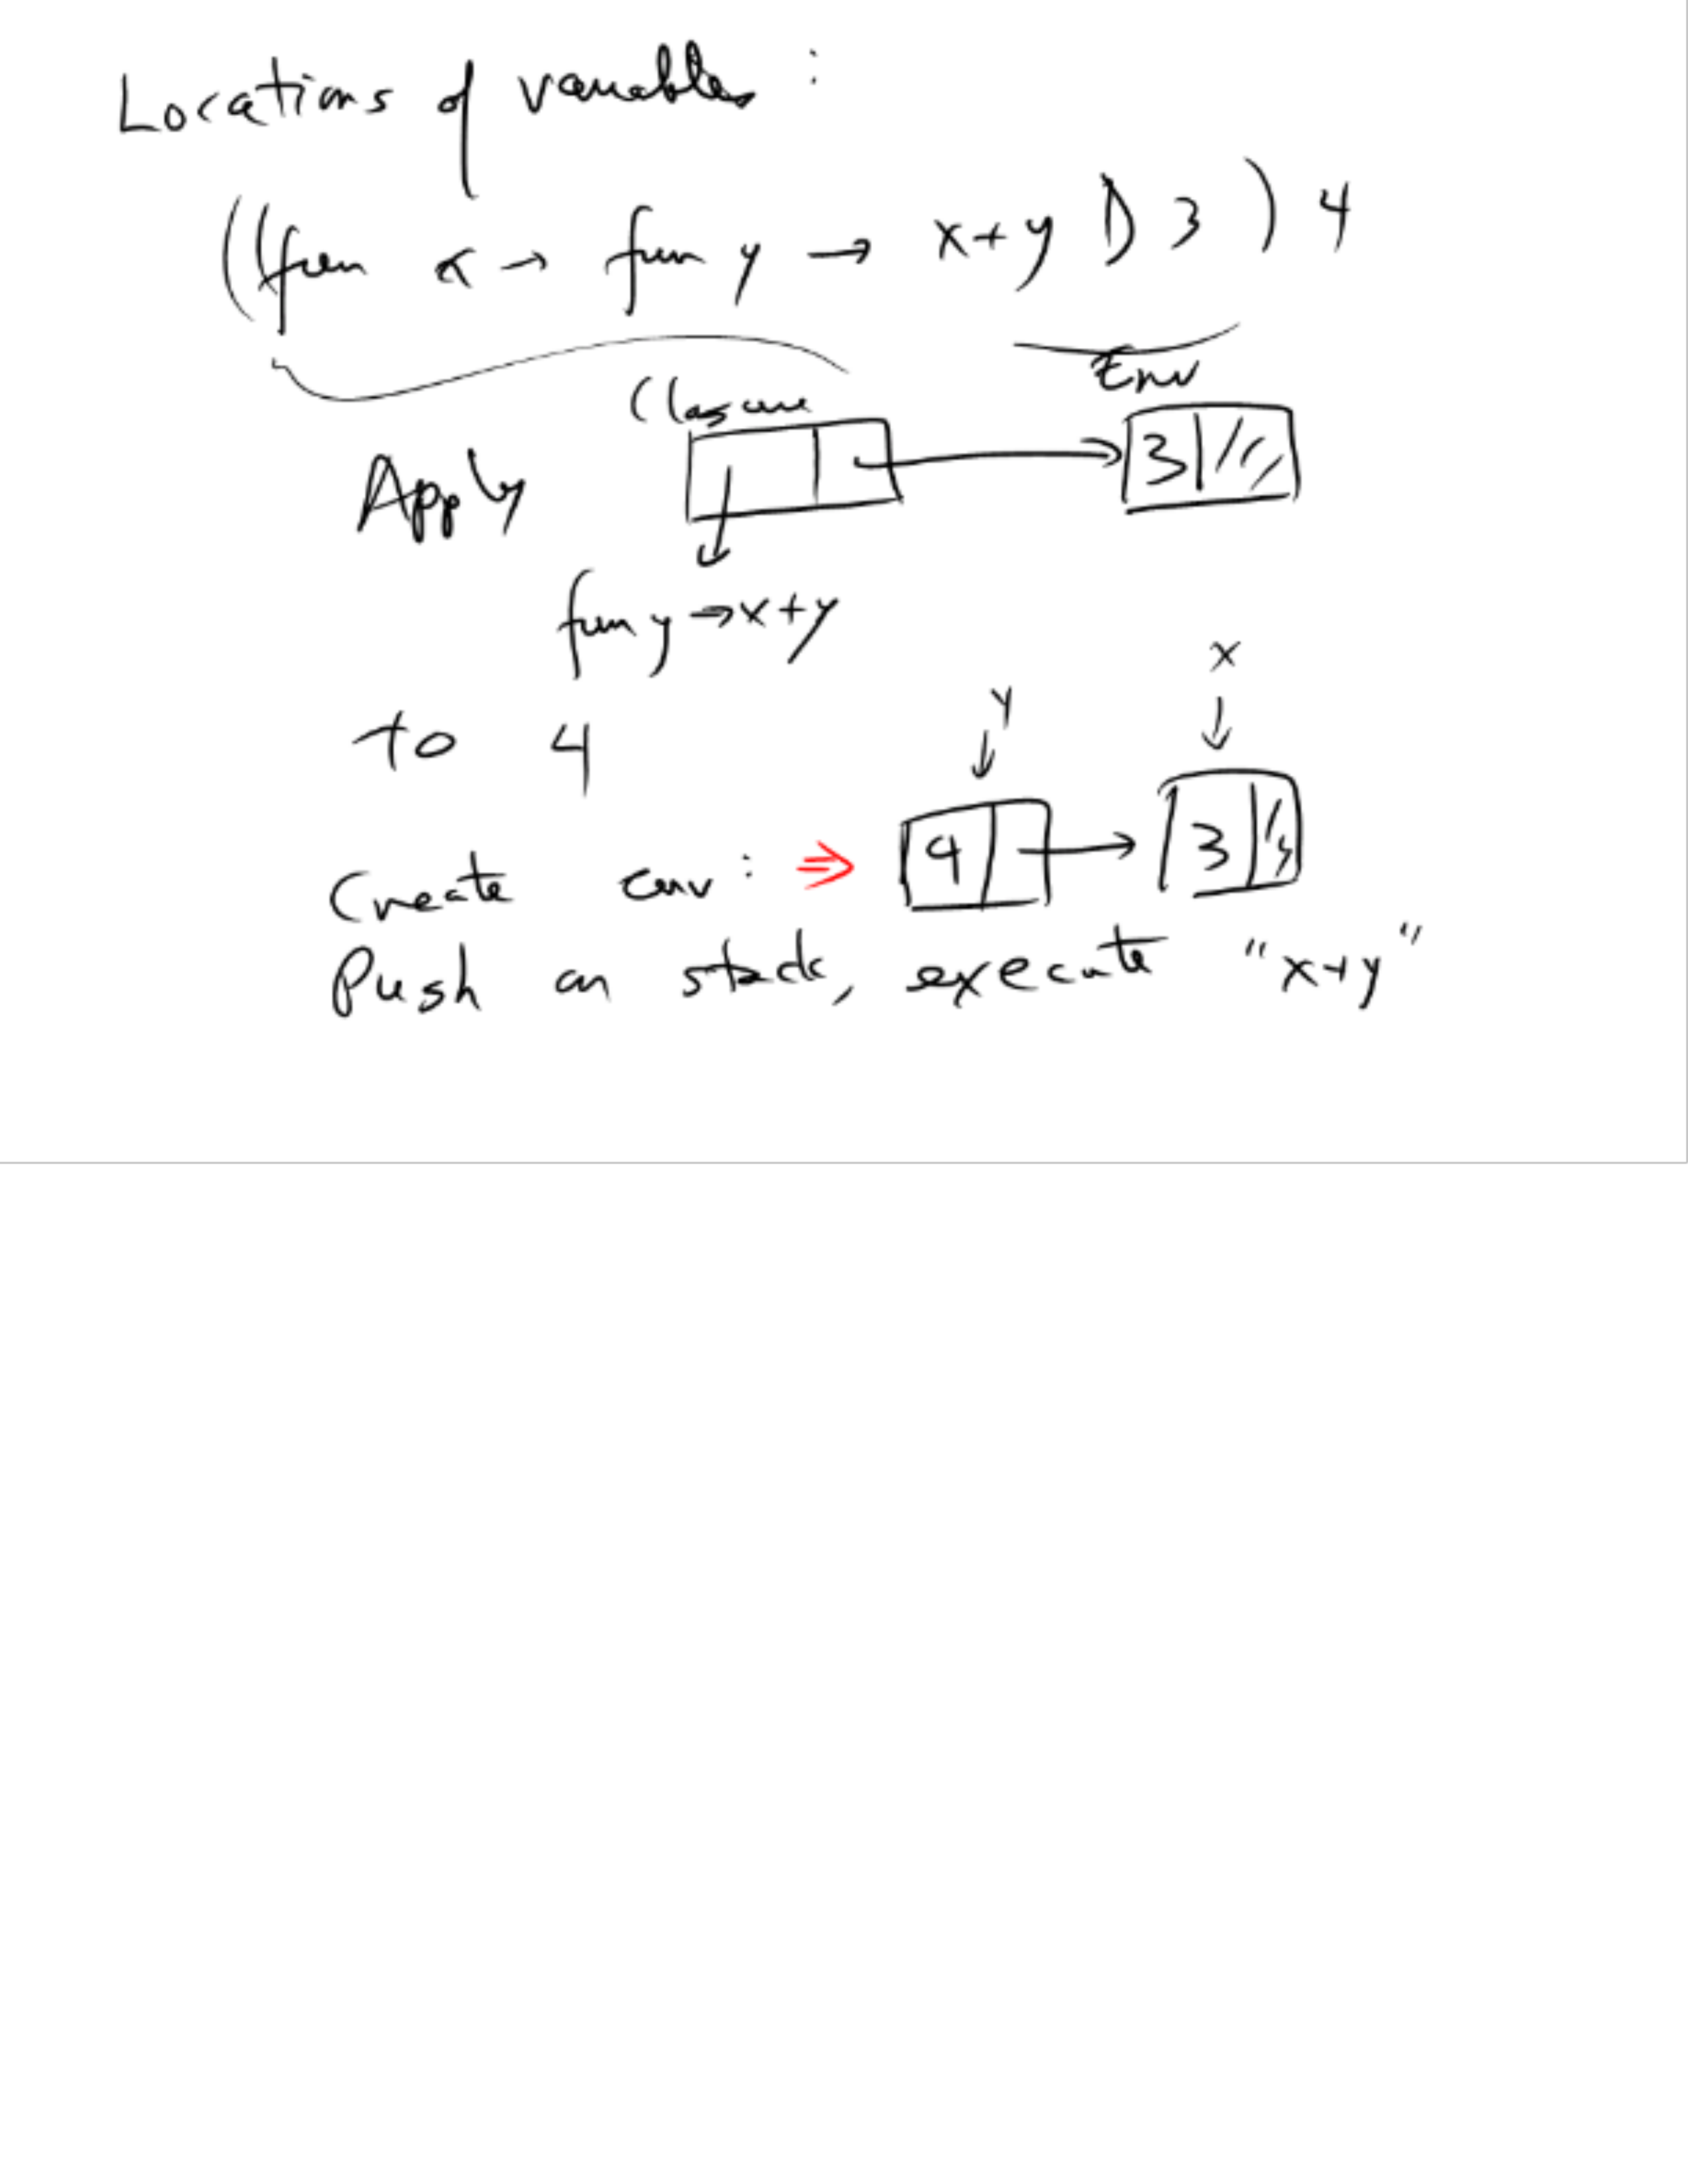 Locations of variables :
((fun x → fun y → x+y ) 3 ) 4
Closure Env
Apply 3
fun y → x+y
x
y
to 4
4 3
Create env : ⇒
Push on stack, execute "x+y"